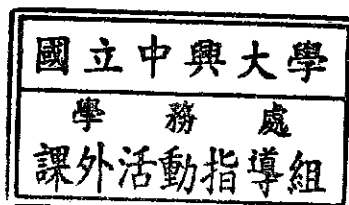 國立中興大學
學務處
課外活動指導組